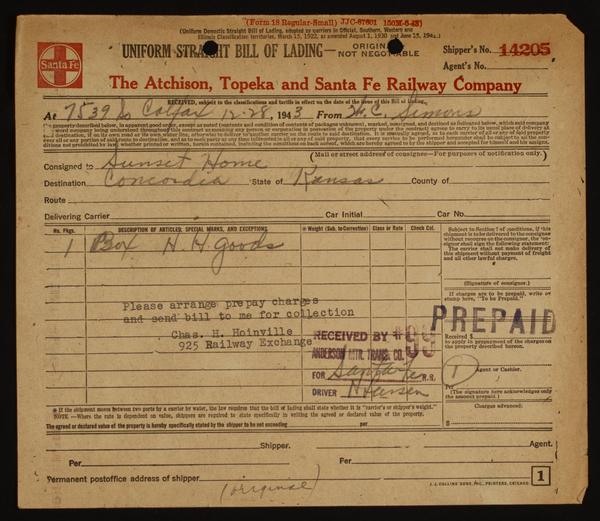 (Form 18 Regular-Small) JJC-67601 150M-6-43)
(Uniform Domestic Straight Bill of Lading, adopted by carriers in Official, Southern, Western and
Illinois Classification territories, March 15, 1922, as amended August 1, 1930 and June 15, 1941.)
UNIFORM STRAIGHT BILL OF LADING—ORIGINAL—NOT NEGOTIABLE
Shipper's No. 14205
Agent's No.
Santa Fe
The Atchison, Topeka and Santa Fe Railway Company
RECEIVED, subject to the classifications and tariffs in effect on the date of the issue of this Bill of Lading,
At 7539 S. Colfax 12-28, 1943 From H. C. Simons
Consigned to Sunset Home
(Mail or street address of consignee—For purposes of notification only.)
Destination Concordia State of Kansas County of
Route
Delivering Carrier Car Initial Car No.
No. Pkgs. DESCRIPTION OF ARTICLES, SPECIAL MARKS, AND EXCEPTIONS * Weight (Sub. to Correction) Class or Rate Check Col.
1 Box H. H. goods
Subject to Section 7 of conditions, if this
shipment is to be delivered to the consignee
without recourse on the consignor, the con-
signor shall sign the following statement:
The carrier shall not make delivery of
this shipment without payment of freight
and all other lawful charges.
(Signature of consignor.)
If charges are to be prepaid, write or
stamp here, "To be Prepaid."
PREPAID
Please arrange prepay charges
and send bill to me for collection
Chas. H. Hoinville
925 Railway Exchange
RECEIVED BY #99
ANDERSON MTR. TRANS. CO.
FOR Santa Fe R.R.
DRIVER Hansen
Received $
to apply in prepayment of the charges on
the property described hereon.
1
Agent or Cashier.
Per
(The signature here acknowledges only
the amount prepaid.)
Charges advanced:
$
* If the shipment moves between two ports by a carrier by water, the law requires that the bill of lading shall state whether it is "carrier's or shipper's weight."
NOTE.—Where the rate is dependent on value, shippers are required to state specifically in writing the agreed or declared value of the property.
The agreed or declared value of the property is hereby specifically stated by the shipper to be not exceeding per
Shipper. Agent.
Per Per
Permanent postoffice address of shipper
(original)
J. J. COLLINS' SONS, INC., PRINTERS, CHICAGO.
1